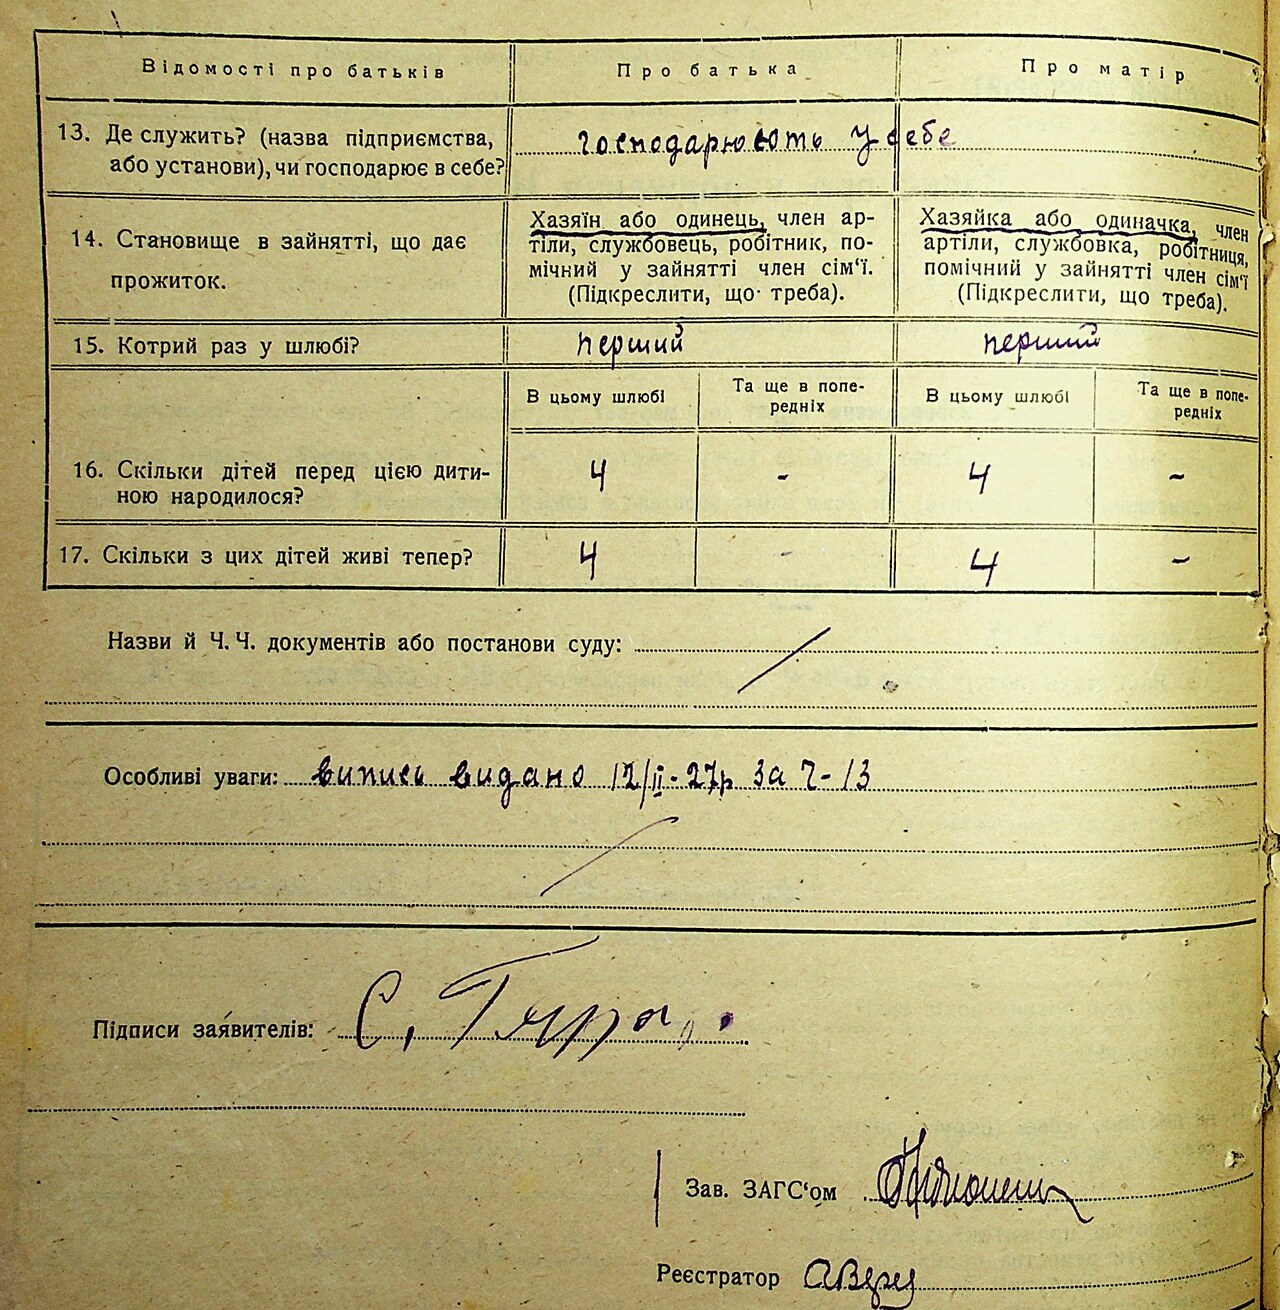 Відомості про батьків Про батька Про матір
13. Де служить? (назва підприємства,
або установи), чи господарює в себе?
господарюють у себе
14. Становище в зайнятті, що дає
прожиток.
Хазяїн або одинець, член ар-
тіли, службовець, робітник, по-
мічний у зайнятті член сім‘ї.
(Підкреслити, що треба).
Хазяйка або одиначка, член
артіли, службовка, робітниця,
помічний у зайнятті член сім‘ї
(Підкреслити, що треба).
15. Котрий раз у шлюбі? перший перший
В цьому шлюбі
Та ще в попе-
редніх
В цьому шлюбі
Та ще в попе-
редніх
16. Скільки дітей перед цією дити-
ною народилося?
4 - 4 -
17. Скільки з цих дітей живі тепер? 4 - 4 -
Назви й Ч. Ч. документів або постанови суду:
Особливі уваги: випись видано 12/II-27р за Ч-13
Підписи заявителів: С.
Зав. ЗАГС‘ом
Реєстратор